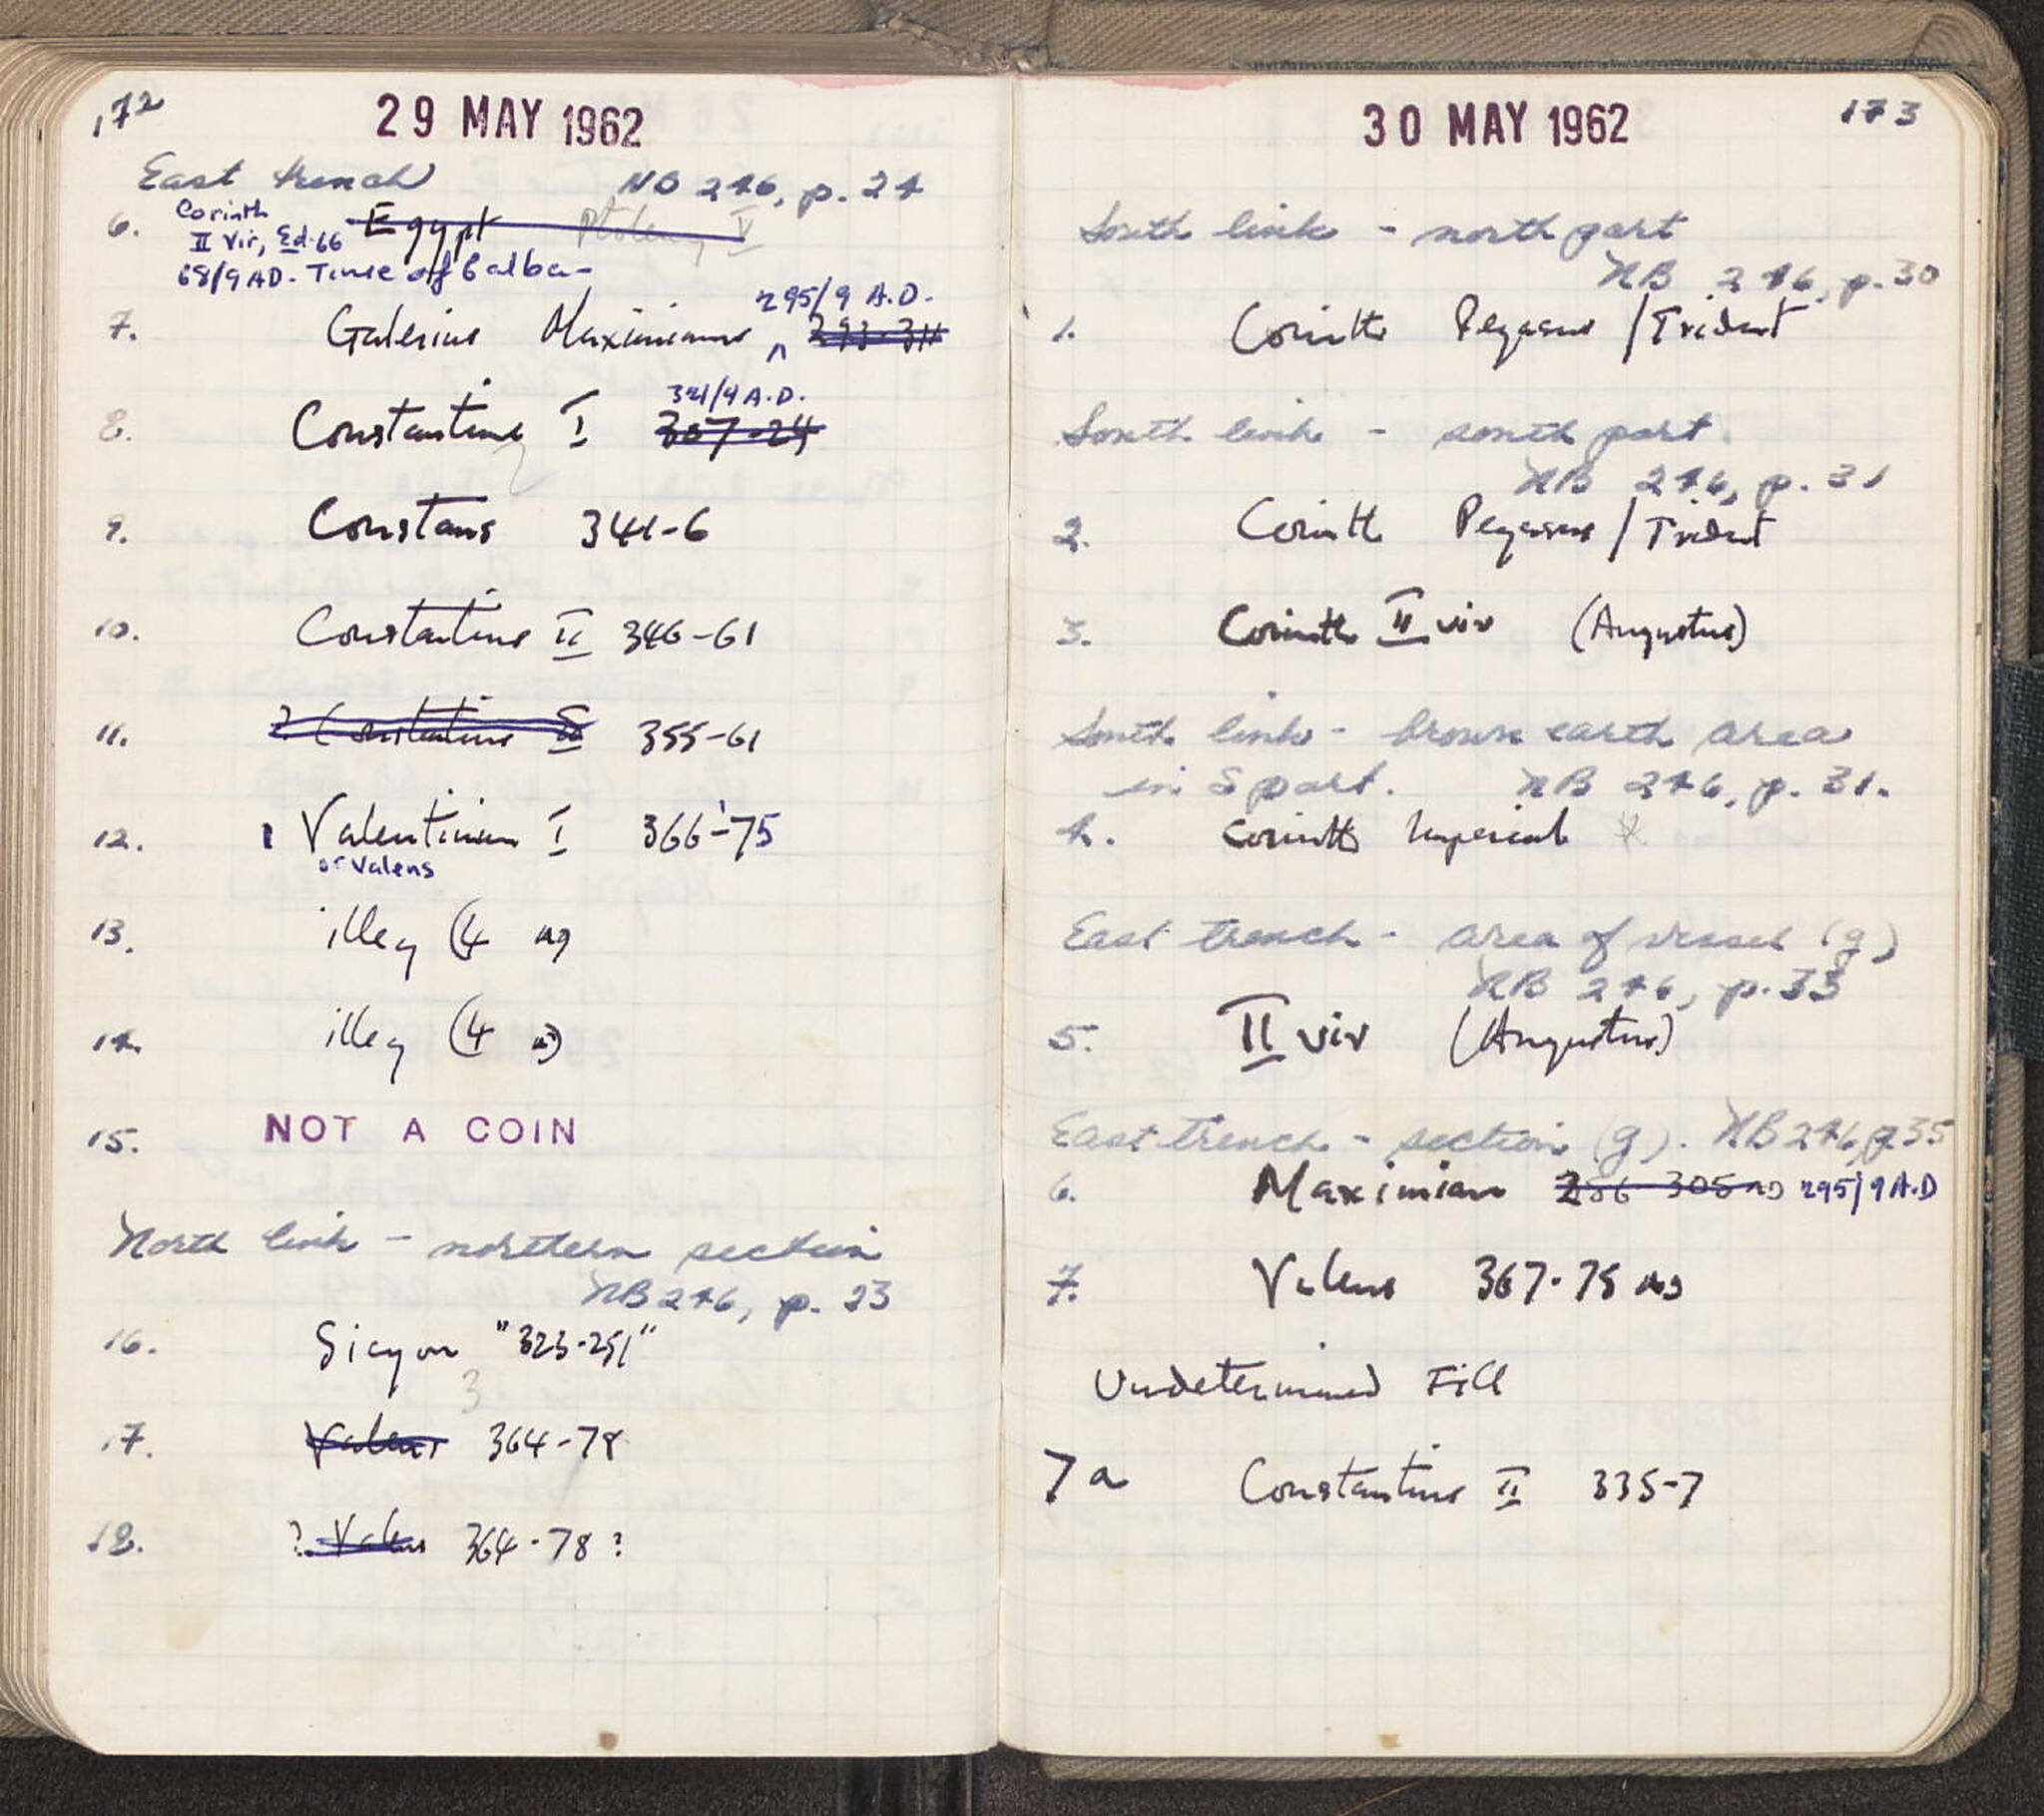 172
29 MAY 1962
East trench NB 246, p. 24
6. Corinth Egypt Ptolemy V
II Vir, Ed. 66
68/9 AD. Time of Galba-
295/9 A.D.
7. Galerius Maximianus 293-311
321/4 A.D.
8. Constantine I 307-24
9. Constans 341-6
10. Constantius II 346-61
11. ? Constantius II 355-61
12. Valentinian I 366-75
or Valens
13. illeg (4
14. illeg (4
15. NOT A COIN
North link - northern section
NB 246, p. 23
16. Sicyon "323-251"
3
17. Valens 364-78
18. ? Valens 364-78 ?
173
30 MAY 1962
South link - north part
NB 246, p. 30
1. Corinth Pegasus / Trident
South link - south part.
NB 246, p. 31
2. Corinth Pegasus / Trident
3. Corinth II vir (Augustus)
South link - brown earth area
in S part. NB 246, p. 31.
4. Corinth Imperial
East trench - area of vessel (g)
NB 246, p. 33
5. II vir (Augustus)
East trench - section (g). NB 246, p 35
6. Maximian 286-305 AD 295/9 A.D
7. Valens 367-75
Undetermined Fill
7a Constantine II 335-7